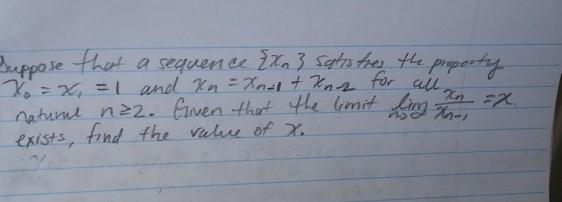 Suppose that a sequence {xₙ} satisfies the property
x₀ = x₁ = 1 and xₙ = xₙ₋₁ + xₙ₋₂ for all
natural n ≥ 2. Given that the limit lim n→∞ xₙ/xₙ₋₁ = x
exists, find the value of x.